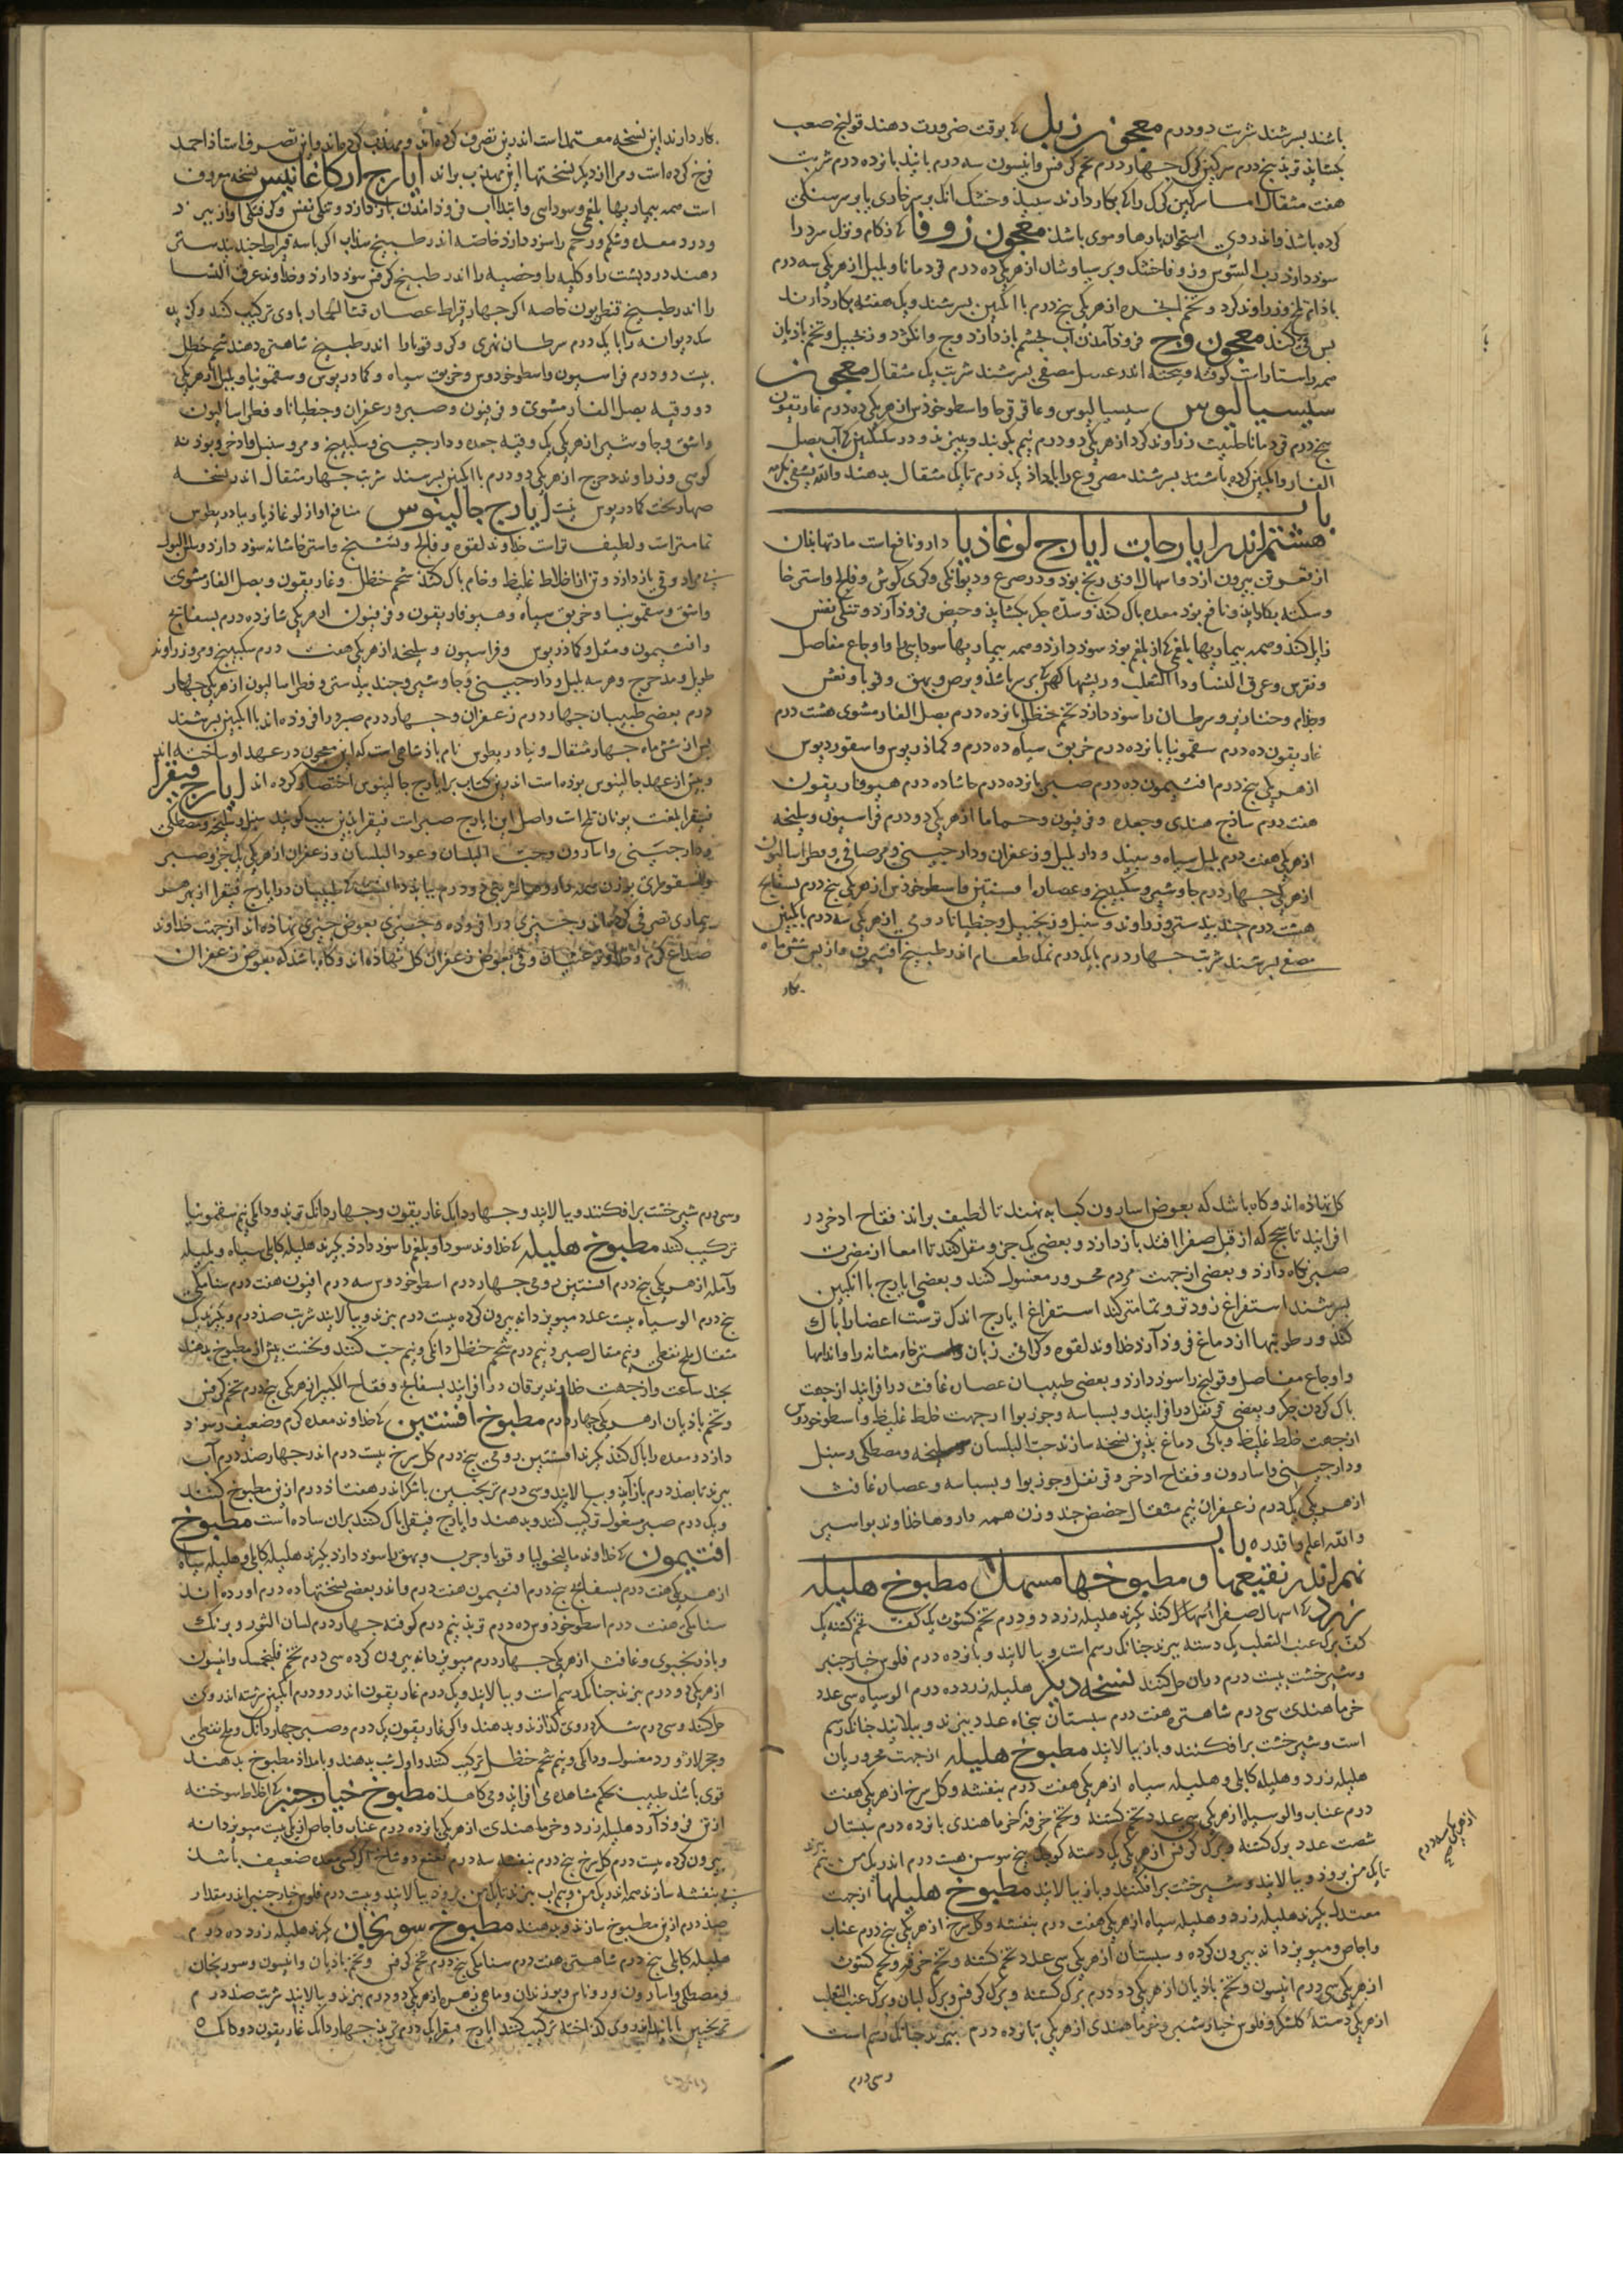 باشند بسرشند شربت دو درم معجون زبل که بوقت ضرورت دهند قولنج صعب
بکشاید تربد پنج درم سرکین کرک چهار درم تخم کرفس وانیسون سه درم پانزده درم شربت
هفت مثقال اما سرکین کرک را که بکار دارند سپید وخشک
کرده باشد واندروی استخوان پارها وموی باشد معجون زوفا که زکام ونزله سرد را
سود دارد رب السوس وزوفا خشک وپرسیاوشان از هر یکی ده درم قردمانا وپلپل از هر یکی سه درم
بادام تلخ وزراوند کرد وتخم انجره از هر یکی پنج درم با انکبین بسرشند ویک هفته بکار دارند
معجون وج فروذ آمدن آب بچشم باز دارد وج وانکژد وزنجبیل وتخم بادیان
همه راستاراست کوفته وبیخته اندر عسل مصفی بسرشند شربت یک مثقال معجون
سیسالیوس سیسالیوس وعاقرقرحا واسطوخودوس از هر یکی ده درم غاریقون
پنج درم قردمانا حلتیت زراوند کرد از هر یکی دو درم نیم بکوبند وببیزند ودر سکنکبین که آب بصل
الفار وانکبین کرده باشند بسرشند مصروع را بامداد یک درم تا یک مثقال بدهند
باب
هشتم اندر ایارجات ایارج لوغاذیا دارو نافع است مادتها بغان
از قعر تن بیرون آرد واسهال او بی رنج بود ودر صرع ودیوانکی وکری کوش وفالج واسترخا
وسکته بکار اید ونافع بود معده پاک کند وسده جکر بکشاید وحیض فروذ آرد وتنکی نفس
زایل کند وهمه بیماریها بلغمی که از بلغم بود سود دارد وهمه بیماریها سودایی را واوجاع مفاصل
ونقرس وعرق النسا وداء الثعلب وریشها کهن که بر سر باشد وبرص وبهق وقوبا ونقش
وجذام وخنازیر وسرطان را سود دارد تخم حنظل پانزده درم بصل الفار مشوی هشت درم
غاریقون ده درم سقمونیا پانزده درم خربق سیاه ده درم وکماذریوس واسقوردیوس
از هر یکی پنج درم افتیمون ده درم صبر پانزده درم حاشا ده درم هیوفاریقون
هفت درم ساذج هندی وجعده وفرفیون وحماما از هر یکی دو درم فراسیون وسلیخه
از هر یکی هفت درم پلپل سیاه وسپید ودارپلپل وزعفران ودارچینی ومر صافی وفطراسالیون
از هر یکی چهار درم جاوشیر وسکبینج وعصاره افسنتین واسطوخودوس از هر یکی پنج درم بسفایج
هشت درم جندبیدستر وزراوند وسنبل وزنجبیل وجنطیانا رومی از هر یکی سه درم بانکبین
مصفی بسرشند شربت چهار درم با یک درم نمک طعام اندر طبیخ افتیمون واز پس شش ماه
بکار
بکار دارند این نسخه معتمد است اندرین تصرف کرده اند ومهذب کرده اند واین تصرف استاذ احمد
فرخ کرده است ومرا از دیکر نسختها این مهذب براند ایارج ارکاغانیس نسخه معروف
است همه بیماریها بلغمی وسوداسی وابتداء آب فروذ آمدن باز دارد وتنکی نفس وکرفتکی آواز ببرد
ودرد معده وشکم ورحم را سود دارد خاصه اندر طبیخ سذاب اکر با سه قیراط جندبیدستر
دهند درد پشت را وکلیه را وخصیه را اندر طبیخ کرفس سود دارد وخداوند عرق النسا
را اندر طبیخ قنطریون خاصه اکر چهار قیراط عصاره قثاء الحمار با وی ترکیب کنند
سک دیوانه را با یک درم سرطان نهری وکر وقوبا را اندر طبیخ شاهتره دهند شحم حنظل
بیست ودو درم فراسیون واسطوخودوس وخربق سیاه وکمادریوس وسقمونیا وپلپل از هر یکی
دو وقیه بصل الفار مشوی وفرفیون وصبر وزعفران وجنطیانا وفطراسالیون
واشق وجاوشیر از هر یکی یک وقیه جعده ودارچینی وسکبینج ومر وسنبل واذخر وبوذنه
کوهی وزراوند مدحرج از هر یکی دو درم با انکبین بسرشند شربت چهار مثقال اندر نسخه
صهاربخت کمادریوس نیست ایارج جالینوس منافع او از لوغاذیا وبیادریطوس
تمامتر است ولطیف تر است خداوند لقوه وفالج وتشنج واسترخا مثانه سود دارد وسلس البول
بی مراد وقی باز دارد وتن از اخلاط غلیظ وخام پاک کند شحم حنظل وغاریقون وبصل الفار مشوی
واشق وسقمونیا وخربق سیاه وهیوفاریقون وفرفیون از هر یکی شانزده درم بسفایج
وافتیمون ومقل وکماذریوس وفراسیون وسلیخه از هر یکی هشت درم سکبینج ومر وزراوند
طویل ومدحرج وهر سه پلپل ودارچینی وجاوشیر وجندبیدستر وفطراسالیون از هر یکی چهار
درم بعضی طبیبان چهار درم زعفران وچهار درم صبر درافزوده اند با انکبین بسرشند
پس از شش ماه چهار مثقال وبیادریطوس نام پادشاهی است که این معجون در عهد او ساخته اند
وپیش از عهد جالینوس بوده است اندرین کتاب بر ایارج جالینوس اختصار کرده اند ایارج فیقرا
فیقرا بلغت یونان تلخ است واصل این ایارج صبر است فیقرا بدین سبب کویند سنبل وسلیخه ومصطکی
ودارچینی واسارون وحب البلسان وعود البلسان وزعفران از هر یکی یک جزو صبر
بیماری تصرفی کرده اند وچیزی درافزوده وچیزی بعوض چیزی نهاده اند از جهت خداوند
صداع کرم وخداوند غثیان وقی بعوض زعفران کل نهاده اند وکاه باشد که بعوض زعفران
کل نهاده اند وکاه باشد که بعوض اسارون کبابه نهند تا لطیف براند فقاح اذخر در
افزایند تا سحج که از قبل صفرا افتد باز دارد وبعضی یک جزو مقل کنند تا امعا از مضرت
صبر نکاه دارد وبعضی از جهت مردم محرور مغسول کنند وبعضی ایارج با انکبین
بسرشند استفراغ زودتر وتمامتر کند استفراغ ایارج اندک تر است اعضا را پاک
کند ورطوبتها از دماغ فروذ آرد خداوند لقوه وکرانی زبان واسترخاء مثانه را واندامها
واوجاع مفاصل وقولنج را سود دارد وبعضی طبیبان عصاره غافت درافزایند از جهت
پاک کردن جکر وبعضی قرنفل درافزایند وبسباسه وجوزبوا از جهت خلط غلیظ واسطوخودوس
از جهت خلط غلیظ وپاکی دماغ بدین نسخه سازند حب البلسان وسلیخه ومصطکی وسنبل
ودارچینی واسارون وفقاح اذخر وقرنفل وجوزبوا وبسباسه وعصاره غافت
از هر یکی یک درم زعفران نیم مثقال حضض چند وزن همه داروها خداوند بواسیر
والله اعلم باب
نهم اندر نقیعها ومطبوخها مسهل مطبوخ هلیله
زرد که اسهال صفرا کند بکیرند هلیله زرد دو درم تخم کشوث یک کف تخم کشنه یک
کف برک عنب الثعلب یک دسته بپزند چنانک رسم است وبپالایند وپانزده درم فلوس خیارچنبر
وشیرخشت بیست درم دران حل کنند نسخه دیکر هلیله زرد ده درم آلو سیاه سی عدد
خرما هندی سی درم شاهتره هفت درم سبستان پنجاه عدد بپزند وبپالایند چنانک رسم
است وشیرخشت برافکنند وباز بپالایند مطبوخ هلیله از جهت محروریان
هلیله زرد وهلیله کابلی وهلیله سیاه از هر یکی هفت درم بنفشه وکل سرخ از هر یکی هفت
درم عناب وآلو سیاه از هر یکی سی عدد تخم کشنه وتخم خرفه خرما هندی پانزده درم سبستان
شصت عدد برک کشنه وبرک کرفس از هر یکی یک دسته کوچک بیخ سوسن هشت درم اندر یک من
تا یک من برود وبپالایند وشیرخشت برافکنند وباز بپالایند مطبوخ هلیلها از جهت
معتدل بکیرند هلیله زرد وهلیله سیاه از هر یکی هفت درم بنفشه وکل سرخ از هر یکی پنج درم عناب
واجاص ومویز دانه بیرون کرده وسبستان از هر یکی سی عدد تخم کشنه وتخم خرفه وتخم کشوث
از هر یکی سی درم انیسون وتخم بادیان از هر یکی دو درم برک کشنه وبرک کرفس وبرک لبلاب وبرک عنب الثعلب
از هر یکی دسته کلشکر وفلوس خیارشنبر وخرما هندی از هر یکی پانزده درم بپزند چنانک رسم است
وسی درم
وسی درم شیرخشت برافکنند وبپالایند وچهار دانک غاریقون وچهار دانک تربد ودانکی نیم سقمونیا
ترکیب کنند مطبوخ هلیله که خداوند سودا وبلغم را سود دارد بکیرند هلیله کابلی سیاه وبلیله
وآمله از هر یکی پنج درم افسنتین رومی چهار درم اسطوخودوس سه درم افیون هفت درم سنا مکی
پنج درم آلو سیاه بیست عدد مویز دانه بیرون کرده بیست درم بپزند وبپالایند شربت صد درم وبکیرند یک
مثقال ملح نفطی ونیم مثقال صبر ونیم درم شحم حنظل دانکی ونیم حب کنند ونخست پیش از مطبوخ بدهند
بچند ساعت واز جهت خداوند یرقان درافزایند بسفایج وفقاح الکبر از هر یکی پنج درم تخم کرفس
وتخم بادیان از هر یکی چهار درم مطبوخ افسنتین که خداوند معده کرم وضعیف را سود
دارد ومعده را پاک کند بکیرند افسنتین رومی پنج درم کل سرخ بیست درم اندر چهار صد درم آب
بپزند تا بصد درم باز آید وبپالایند وسی درم ترنجبین با شکر اندر هفتاد درم ازین مطبوخ کنند
ویک درم صبر مغسول ترکیب کنند وبدهند وایارج فیقرا پاک کنند بران ساده است مطبوخ
افتیمون که خداوند مالیخولیا وقوبا وجرب وبهق را سود دارد بکیرند هلیله کابلی وهلیله سیاه
از هر یکی هفت درم بسفایج پنج درم افتیمون هفت درم واندر بعضی نسختها ده درم آورده اند
سنا مکی هفت درم اسطوخودوس ده درم تربد پنج درم کوفته چهار درم لسان الثور وبرنک
وباذرنجبوی وغافت از هر یکی چهار درم مویز دانه بیرون کرده سی درم تخم فلنجمشک وانیسون
از هر یکی دو درم بپزند چنانک رسم است وبپالایند ویک درم غاریقون اندر دو درم انکبین سرشته اندروی
حل کنند وسی درم شکر دروی کدازند وبدهند واکر غاریقون یک درم وصبر چهار دانک وملح نفطی
وحجر لازورد مغسول ودانکی ونیم شحم حنظل ترکیب کنند واول شب بدهند وبامداد مطبوخ بدهند
قوی باشد طبیب بحکم مشاهده می افزاید ومی کاهد مطبوخ خیارچنبر که اخلاط سوخته
از تن فروذ آرد هلیله زرد وخرما هندی از هر یکی پانزده درم عناب واجاص از هر یکی بیست مویز دانه
بیرون کرده بیست درم کل سرخ پنج درم بنفشه سه درم نعنع دو شاخ اکر کسی معده ضعیف باشد
بی بنفشه سازند همه اندر یک من ونیم آب بپزند تا یک من برود وبپالایند وبیست درم فلوس خیارچنبر اندر مقدار
صد درم ازین مطبوخ سازند وبدهند مطبوخ سورنجان بکیرند هلیله زرد ده درم
هلیله کابلی پنج درم شاهتره هفت درم سنا مکی پنج درم تخم کرفس وتخم بادیان وانیسون وسورنجان
ومصطکی واسارون وروناس وبوزیدان وماهی زهره از هر یکی دو درم بپزند وبپالایند شربت صد درم
ترنجبین یا پانید اندروی کداخته ترکیب کنند ایارج فیقرا یک درم تربد چهار دانک غاریقون دو دانک